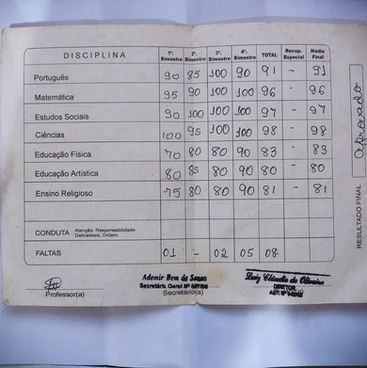 DISCIPLINA 1º. Bimestre 2º. Bimestre 3º. Bimestre 4º. Bimestre TOTAL Recup. Especial Média Final
Português 90 85 100 90 91 - 91
Matemática 95 90 100 100 96 - 96
Estudos Sociais 90 100 100 100 97 - 97
Ciências 100 95 100 100 98 - 98
Educação Física 70 80 80 90 83 - 83
Educação Artística 80 85 80 90 80 - 80
Ensino Religioso 75 80 80 90 81 - 81
CONDUTA Atenção, Responsabilidade Delicadeza, Ordem.
FALTAS 01 - 02 05 08
RESULTADO FINAL aprovado
Ademir Bem de Souza
Secretário Geral Nº
Professor(a) Secretário(a)
Luiz Cláudio de Oliveira
DIRETOR